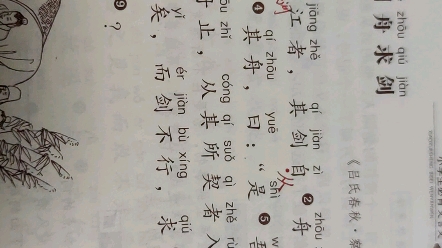 zhōu qiú jiàn
舟求剑
《吕氏春秋·察
jiāng zhě qí jiàn zì zhōu
江者，其剑自❷舟
从
❹ qí zhōu yuē shì
其舟，曰：“是❺吾
zhǐ cóng qí suǒ qì zhě rù
止，从其所契者入
yǐ ér jiàn bù xíng qiú
矣，而剑不行，求
❾？